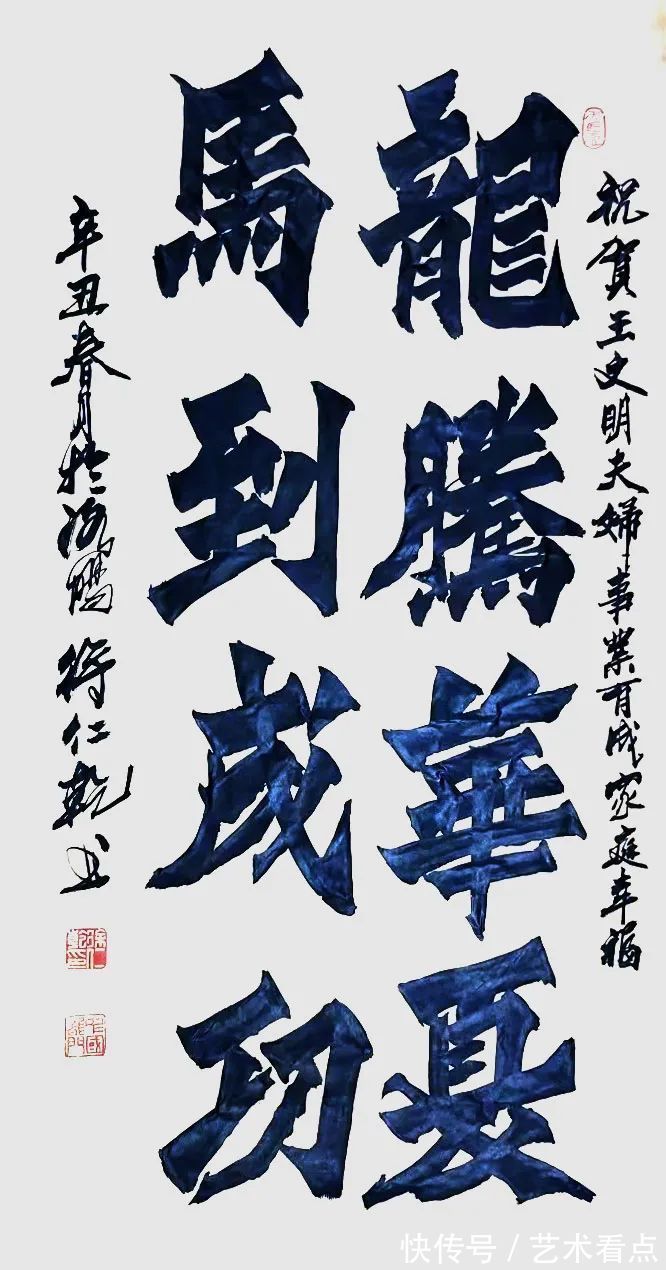 祝賀王史明夫婦事業有成家庭幸福
龍騰華夏
馬到成功
辛丑春月於洛陽 徐仁乾书
快传号 / 艺术看点